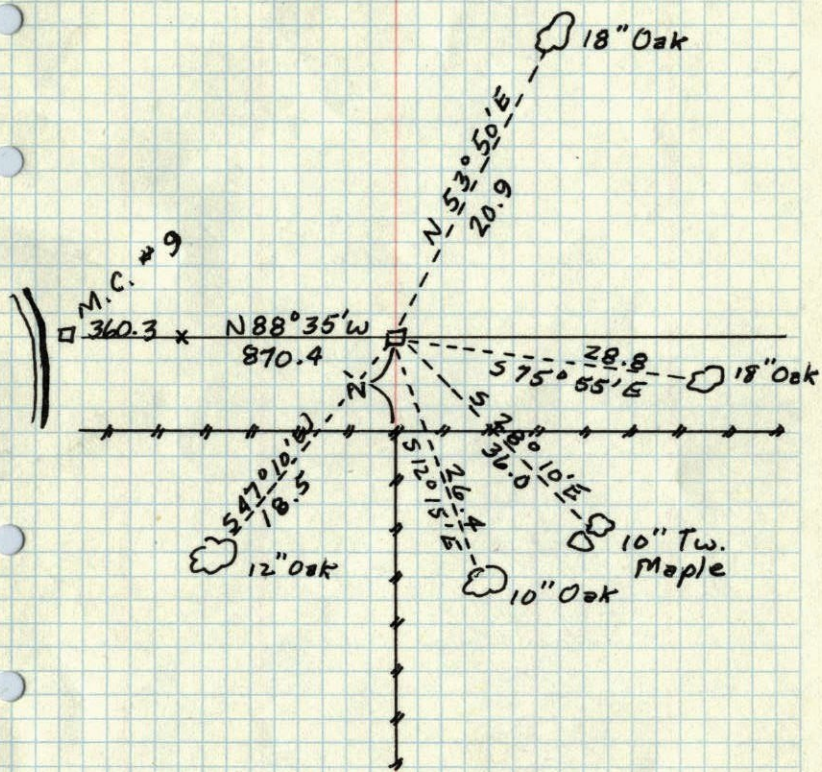 18" Oak
N 53° 50' E
20.9
M.C. # 9
360.3
N 88° 35' W
870.4
28.8
S 75° 55' E
18" Oak
2
S 28° 10' E
36.0
10" Tw.
Maple
26.4
S 12° 15' E
10" Oak
S 47° 10' W
18.5
12" Oak